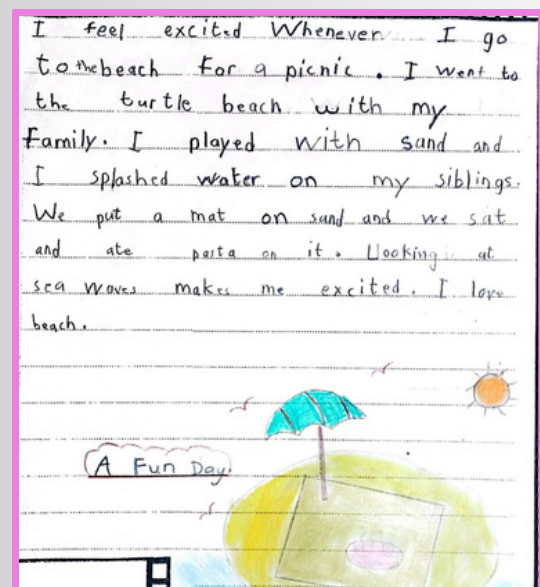 I feel excited Whenever I go
to the beach for a picnic. I went to
the turtle beach with my
family. I played with sand and
I splashed water on my siblings.
We put a mat on sand and we sat
and ate pasta on it. Looking at
sea waves makes me excited. I love
beach.
A Fun Day.